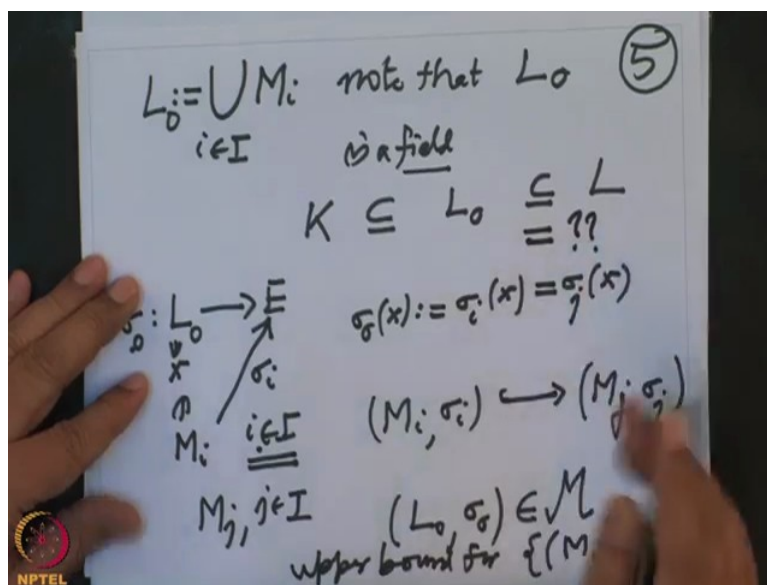 L₀ := ⋃ Mᵢ note that L₀ ⑤
i∈I is a field
K ⊆ L₀ ⊆ L
= ??
σ₀ : L₀ → E σ₀(x) := σᵢ(x) = σⱼ(x)
x σᵢ
Mᵢ i∈I (Mᵢ, σᵢ) ↪ (Mⱼ, σⱼ)
Mⱼ, j∈I (L₀, σ₀) ∈ ℳ
upper bound for {(M
NPTEL